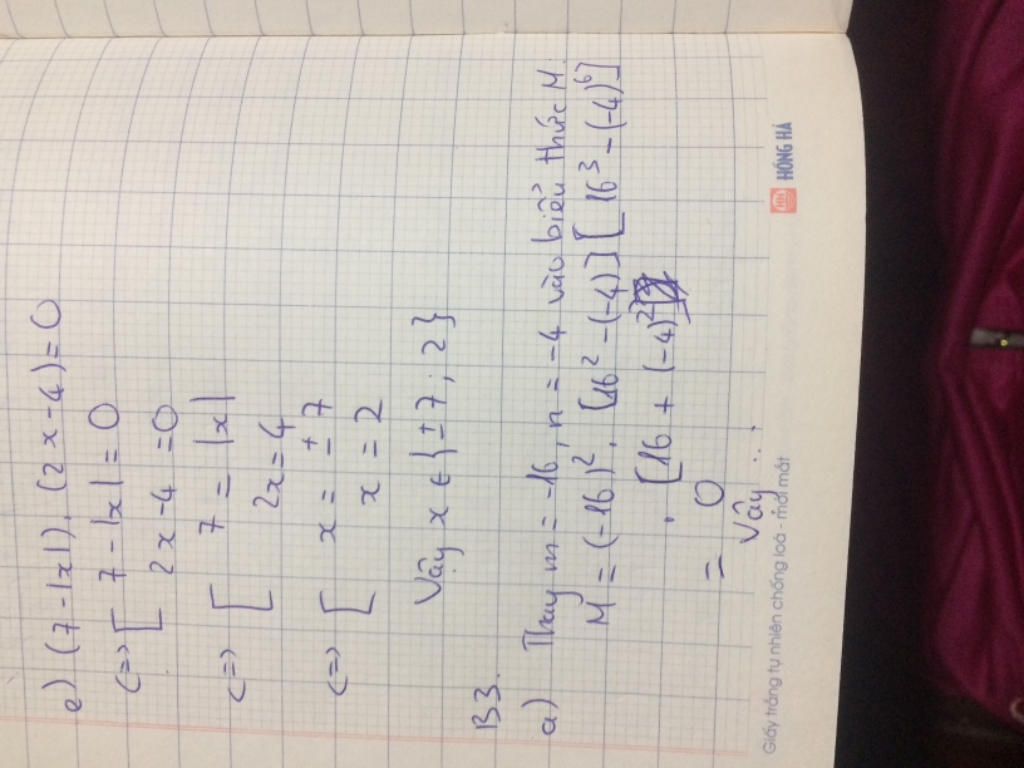 e) (7-|x|).(2x-4)=0
<=> [ 7-|x|=0
2x-4=0
<=> [ 7=|x|
2x=4
<=> [ x=±7
x=2
Vậy x ∈ {±7; 2}
B3.
a) Thay m=-16, n=-4 vào biểu thức M:
M=(-16)². [16²-(-4)] [16³-(-4)⁶]
. [16+(-4)²]
= 0
Vậy ...
Giấy trắng tự nhiên chống loá - mỏi mắt
HỒNG HÀ